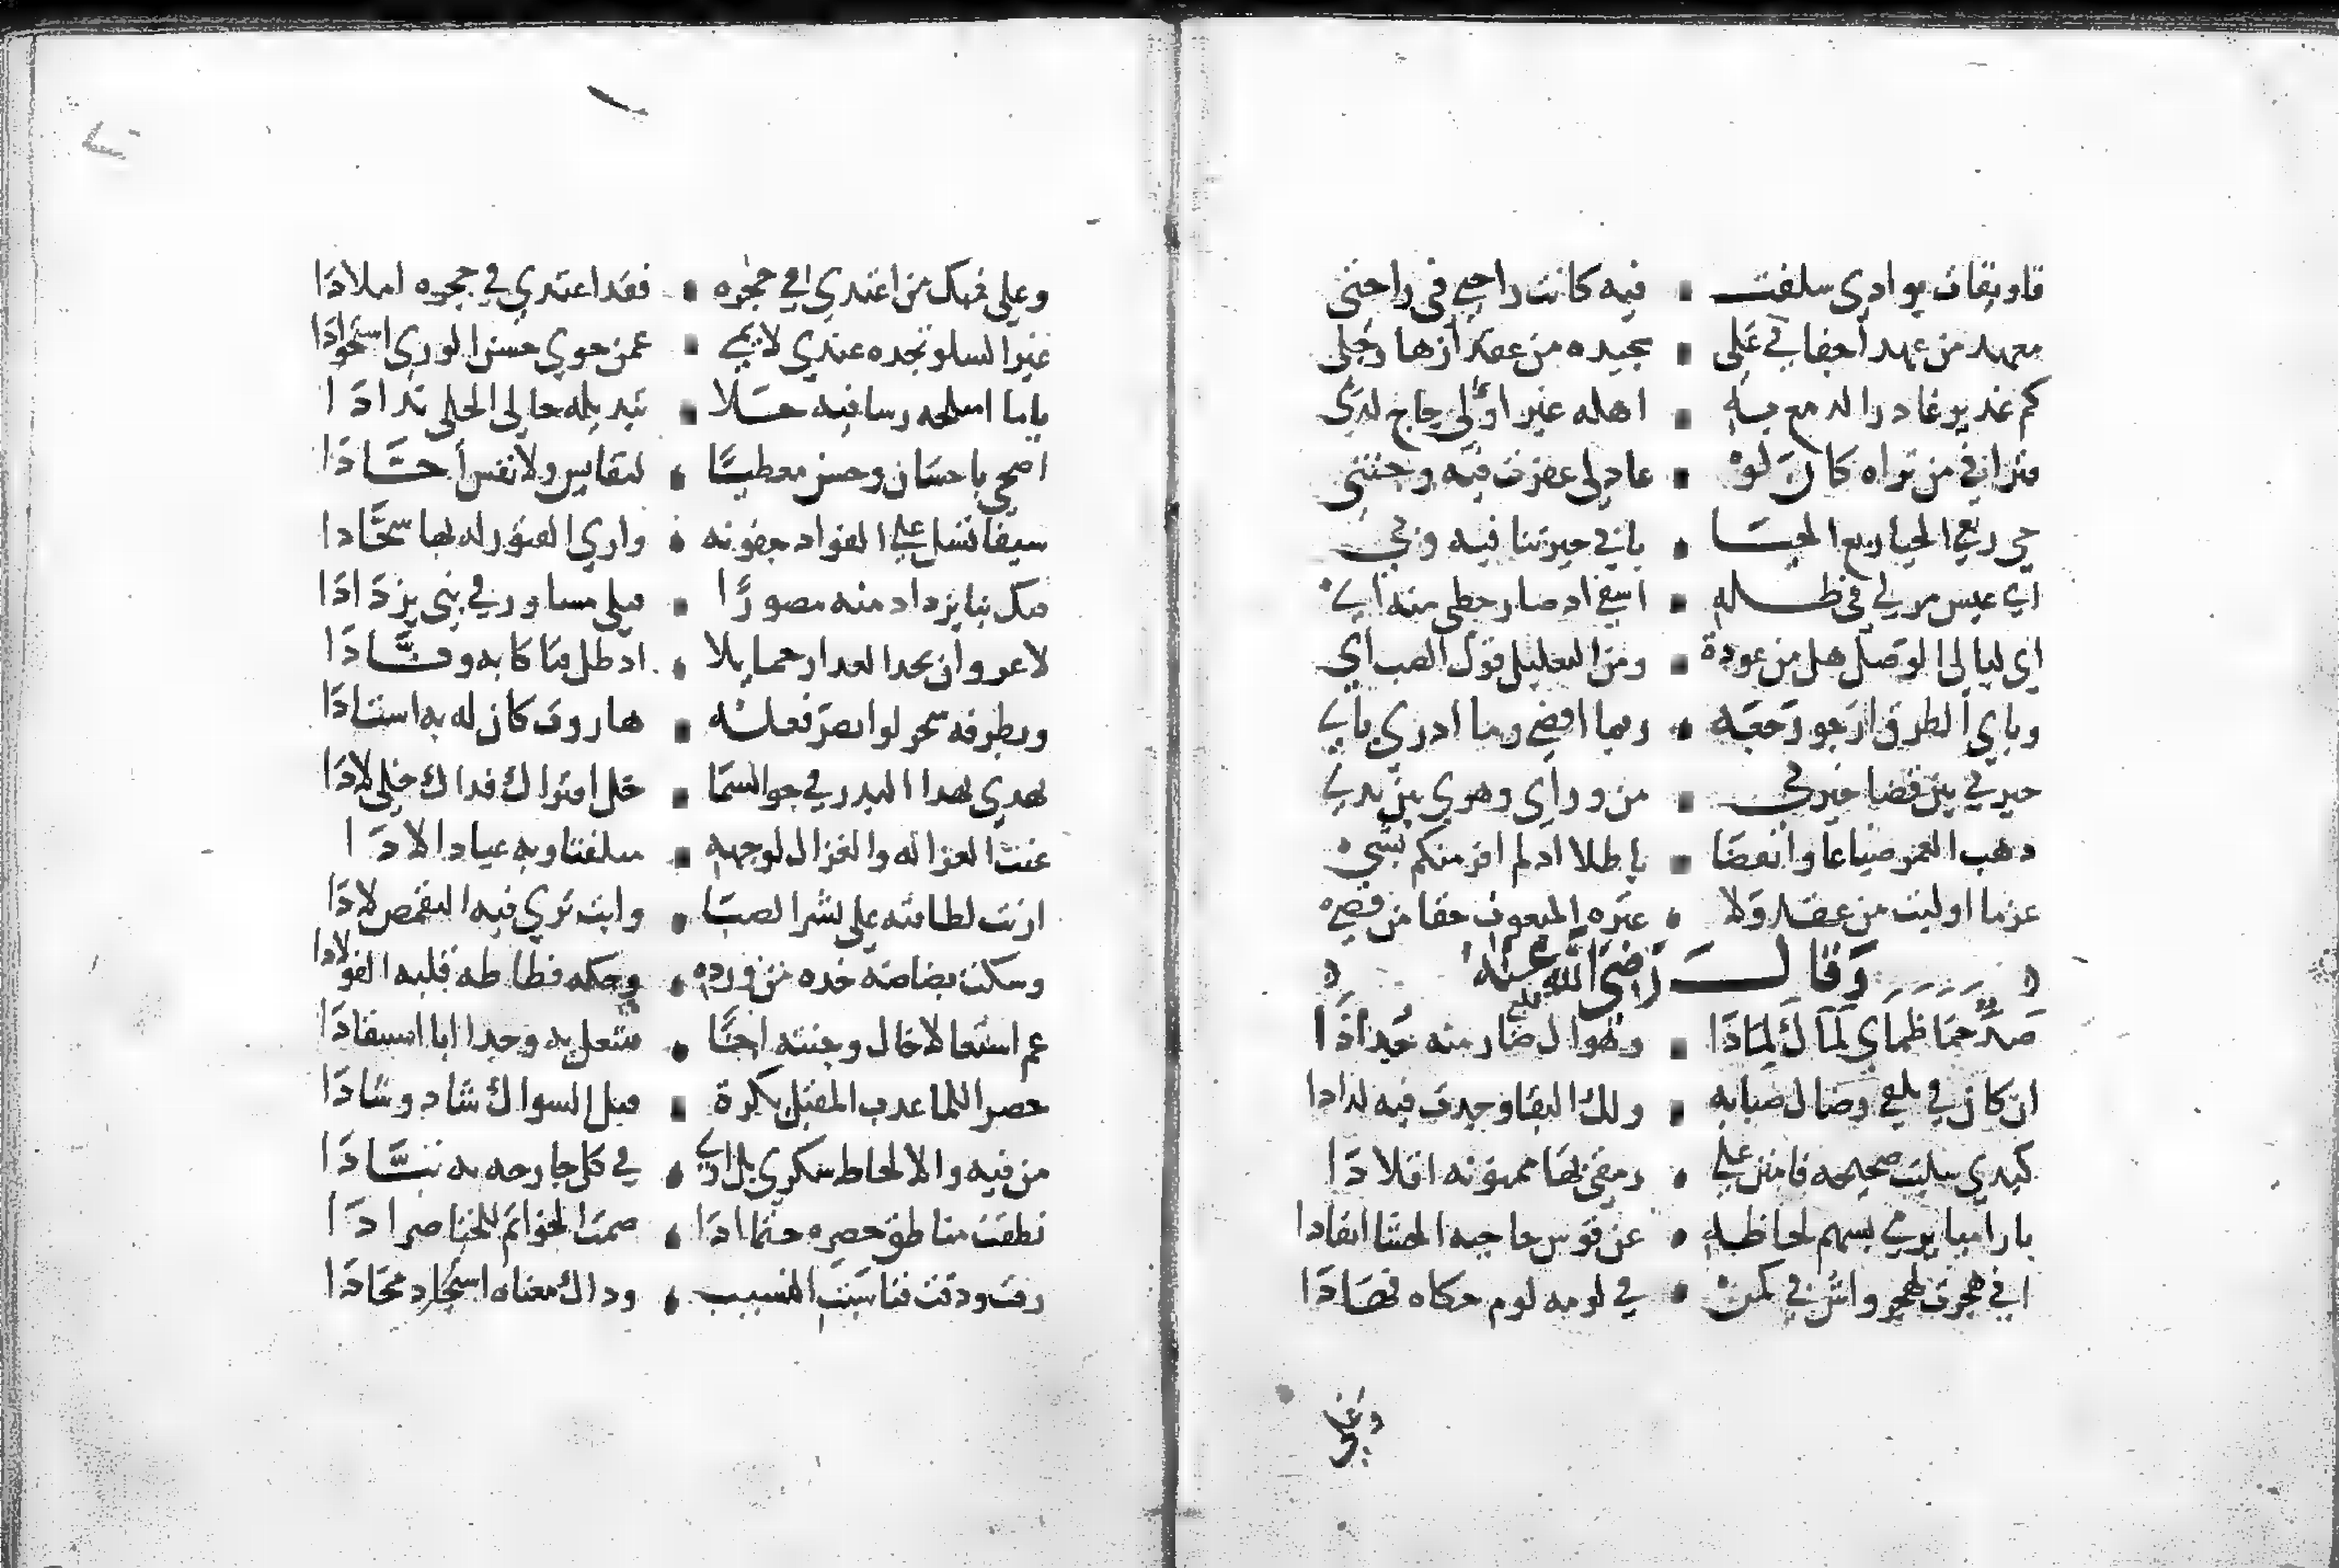 فاويقات بوادي سلفت فيه كانت راحتي في راحتي
معهد من عهد أجفاني على بجيده من عقد أزهار حلي
كم غدير غادر الدمع به اهله غير اولي حاج لري
فتراني من تراه كان لو عاد لي عفرت فيه وجنتي
حي ربعي الحيا ربع الحيا بابي جيرتنا فيه وبي
اي عيش مر لي في ظله اسفي اد صار حظي منه اي
اي ليالي الوصل هل من عودة ومن التعليل قول الصب اي
وباي الطرق ارجو رجعها ربما اقضي وما ادري باي
حيرتي بين قضا جيرتي من وراي وهوي بين يدي
دهب العمر ضياعا وانقضا باطلا اد لم افز منكم بشي
غير ما اوليت من عقد ولا عتره المبعوث حقا من قصي
وقال رضي الله عنه
صد حما ظماي لماك لماذا وهواك قلبي صار منه جذاذا
ان كان في تلفي رضاك صبابه ولك البقا وجدت فيه لذاذا
كبدي سلبت صحيحه فامنن علي رمقي بها ممنونه افلاذا
يا راميا يرمي بسهم لحاظه عن قوس حاجبه الحشا انفاذا
اني هجرت لهجر واش بي كمن في لومه لوم حكاه فهاذا
وعلي فيك من اعتدي في حجره فقد اعتدي في حجره املاذا
غير السلو تجده عندي لايمي عمن حوي حسن الوري استحواذا
ياما اميلحه رشا فيه حلا تبديله حالي الحلي بذاذا
اضحي باحسان وحسن معطيا لنفايس ولانفس أخاذا
سيفا تسل علي الفواد جفونه واري الفتور له بها شحاذا
فتك بنا يزداد منه مصورا قتلي مساور في بني يزداذا
لا غرو ان تخذ العذار حمايلا اد ظل فتاكا به وقاذا
وبطرفه سحر لو ابصر فعله هاروت كان له به استاذا
تهدي بهذا البدر في جو السما خل افتراك فذاك خلي لاذا
عنت الغزاله والغزال لوجهه متلفتا وبه عياذا لاذا
اربت لطافته علي نشر الصبا وابت ترافته التقمص لاذا
وشكت بضاضة خده من ورده وحكت فظاظه قلبه الفولاذا
عم اشتعالا خال وجنته اخا شغل به وجدا ابا استنقاذا
خصر اللما عذب المقبل بكرة قبل السواك ساد وشاذا
من فيه والالحاظ سكري بل اري في كل جارحه به نباذا
نطقت مناطق خصره ختما اذا صمت الخواتم للخناصر اذا
رقت ودقت فناسبت النسيب وذاك معناه استجاد فحاذا
وعلي